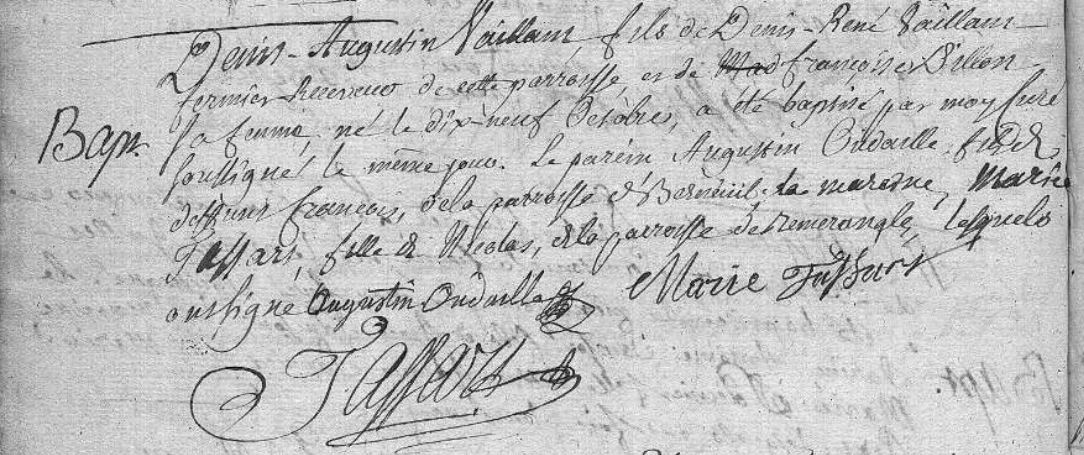 Denis-Augustin Vaillant, fils de Denis-René Vaillant
fermier Receveur de cette parroisse, et de Mad françoise Billon
Bapt. sa femme, né le dix-neuf Octobre, a été baptisé par moy Curé
soussigné le même jour. Le parein Augustin Oudaille fils de
deffunt françois, de la parroisse de Berneuil. la mareine, Marie
Tassart, fille de Nicolas, de la parroisse de remerangle, lesquels
ont signé Augustin Oudaille Marie Tassart
Tassart